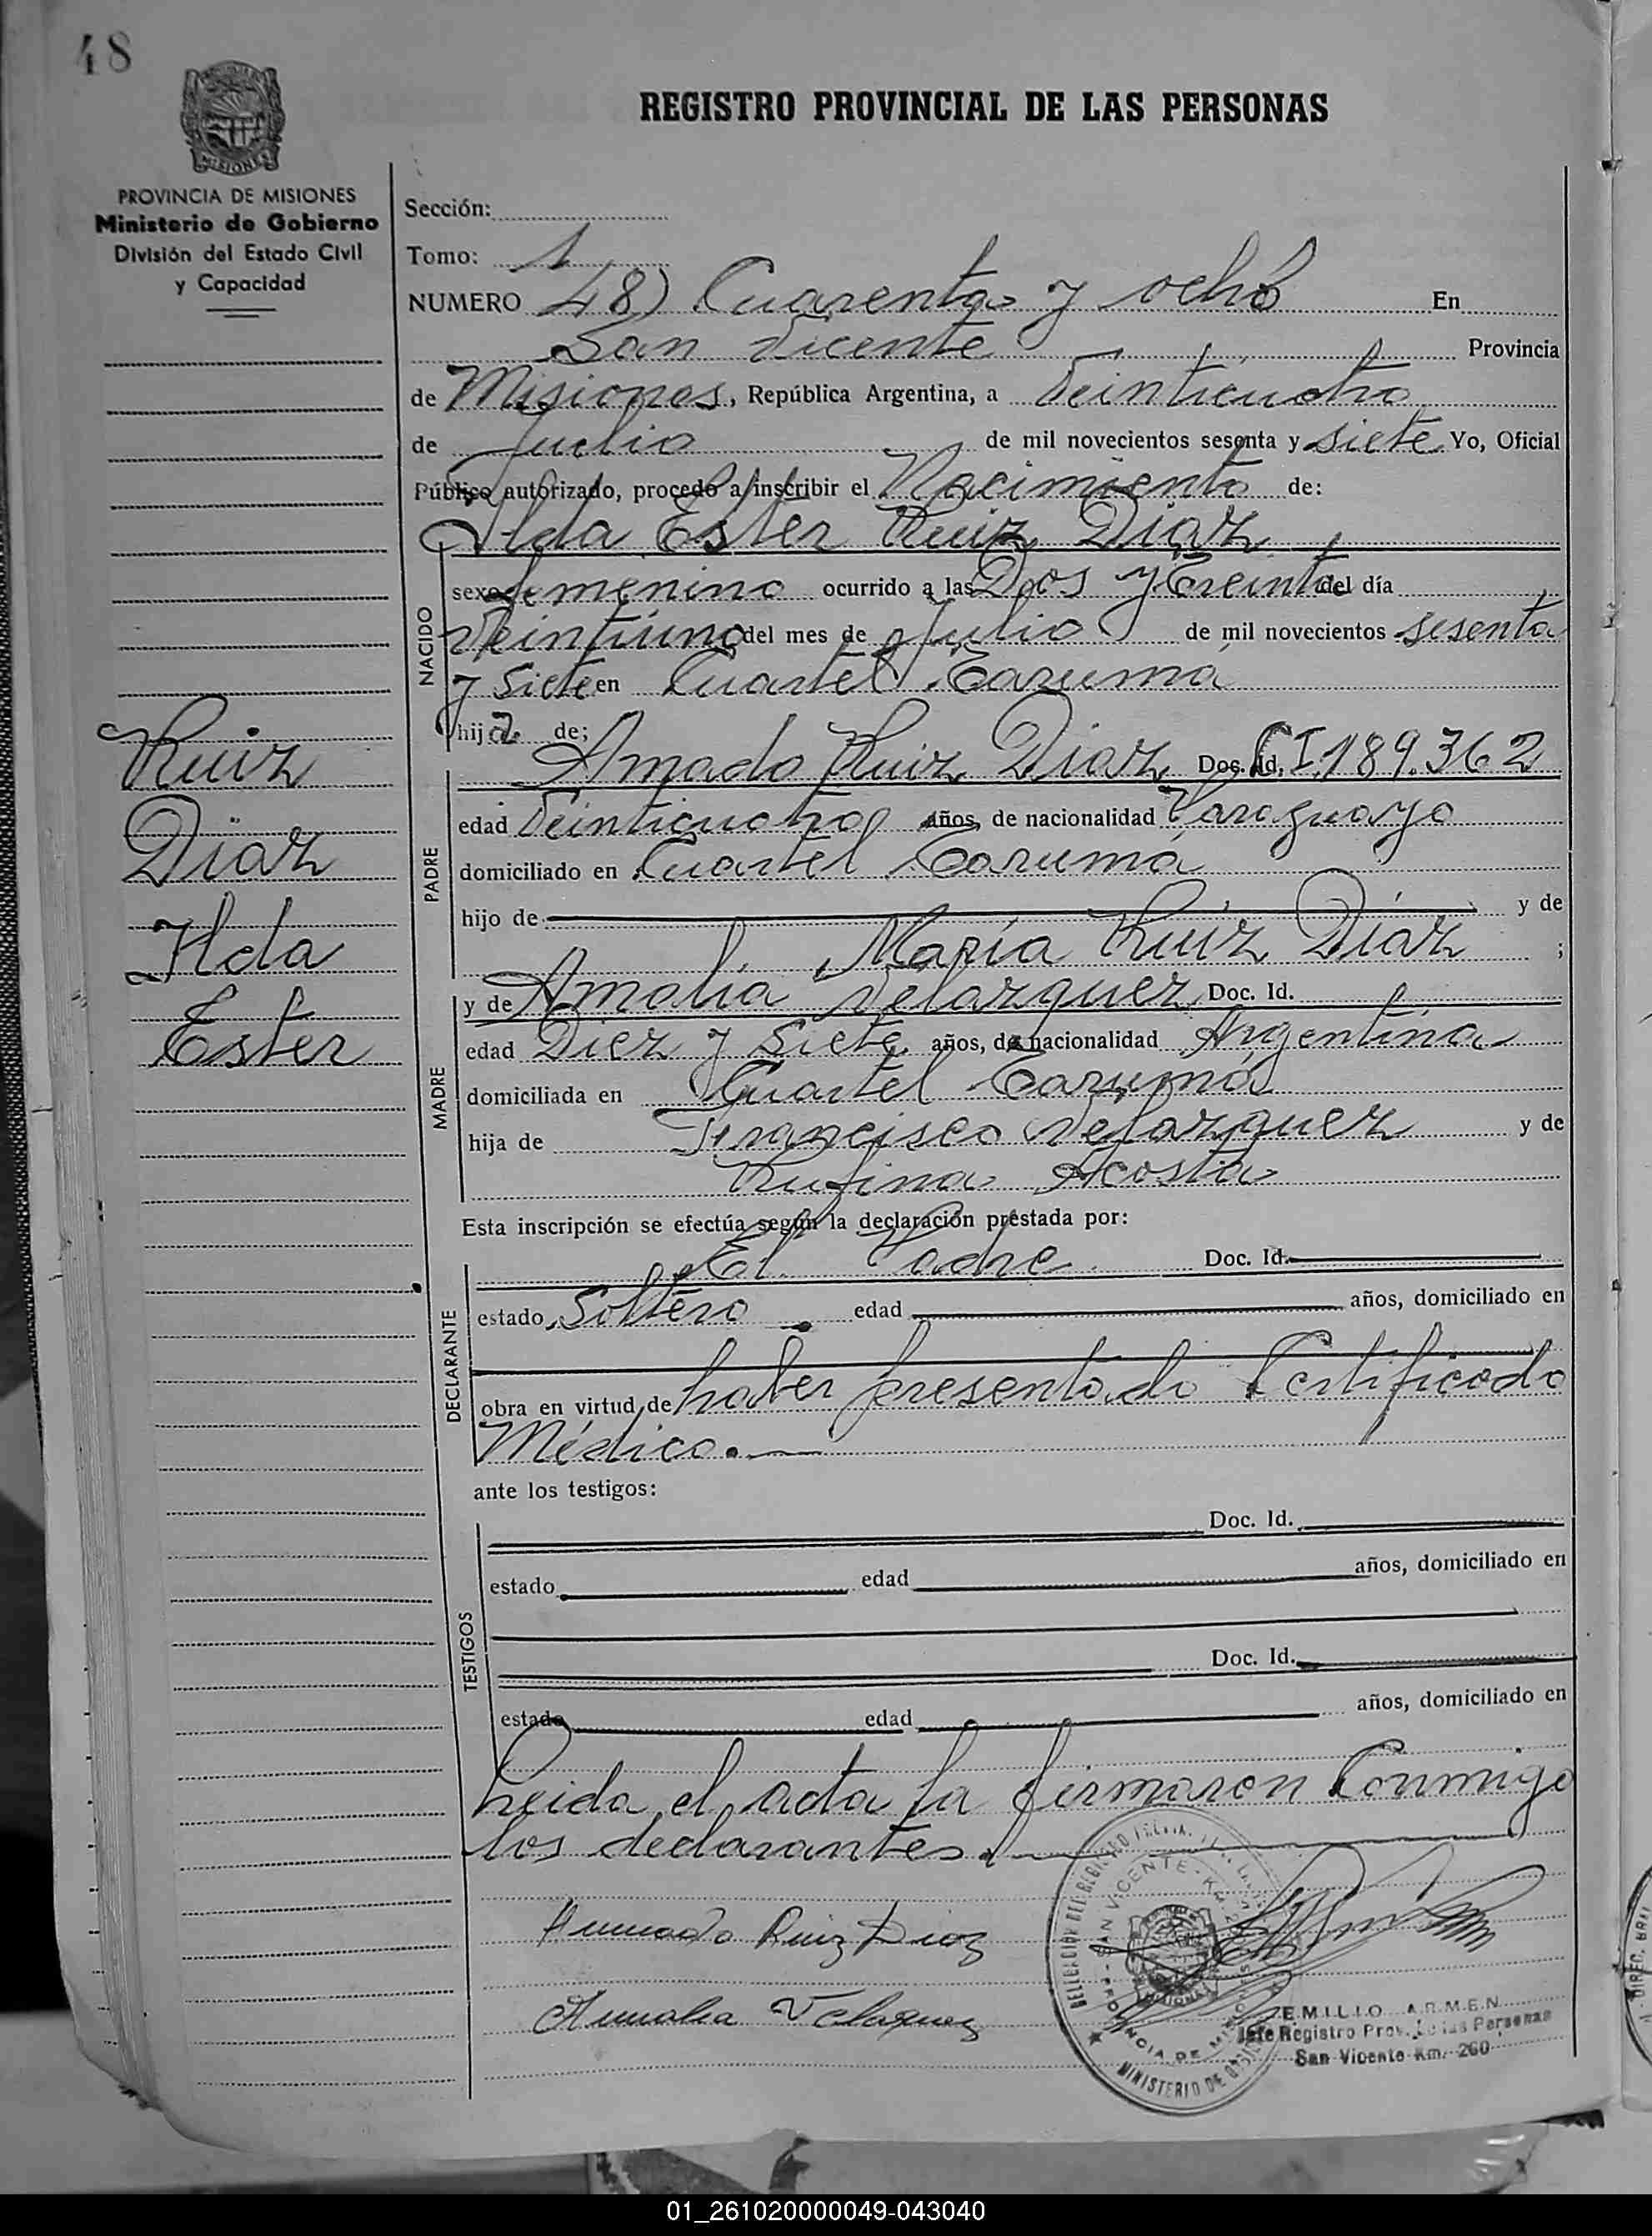 48
REGISTRO PROVINCIAL DE LAS PERSONAS
MISIONES
PROVINCIA DE MISIONES
Ministerio de Gobierno
División del Estado Civil
y Capacidad
Sección:
Tomo: 1
NUMERO 48) Cuarenta y ocho En
San Vicente Provincia
de Misiones, República Argentina, a Veinticuatro
de Julio de mil novecientos sesenta y siete Yo, Oficial
Público autorizado, procedo a inscribir el Nacimiento de:
Ilda Ester Ruiz Diaz
NACIDO
sexo femenino ocurrido a las Dos y Treinta del día
Veintiuno del mes de Julio de mil novecientos sesenta
y Siete en Cuartel Tarumá
hija de;
Ruiz
Diaz
Ilda
Ester
PADRE
Amado Ruiz Diaz Doc. Id. C I.189.362
edad Veinticuatro años, de nacionalidad Paraguayo
domiciliado en Cuartel Tarumá
hijo de y de
María Ruiz Diaz ;
MADRE
y de Amalia Velazquez Doc. Id.
edad Diez y Siete años, de nacionalidad Argentina
domiciliada en Cuartel Tarumá
hija de Francisco Velazquez y de
Rufina Acosta
Esta inscripción se efectúa según la declaración prestada por:
DECLARANTE
El Padre Doc. Id.
estado Soltero edad años, domiciliado en
obra en virtud de haber presentado Certificado
Médico.
ante los testigos:
TESTIGOS
Doc. Id.
estado edad años, domiciliado en
Doc. Id.
estado edad años, domiciliado en
Leida el acta la firmaron Conmigo
los declarantes.
Amado Ruiz Diaz
Amalia Velazquez
DELEGACION DEL REGISTRO
SAN VICENTE
PROVINCIA DE MISIONES
MINISTERIO DE
EMILIO ARMEN
Jefe Registro Prov. de las Personas
San Vicente Km. 260
01_261020000049-043040